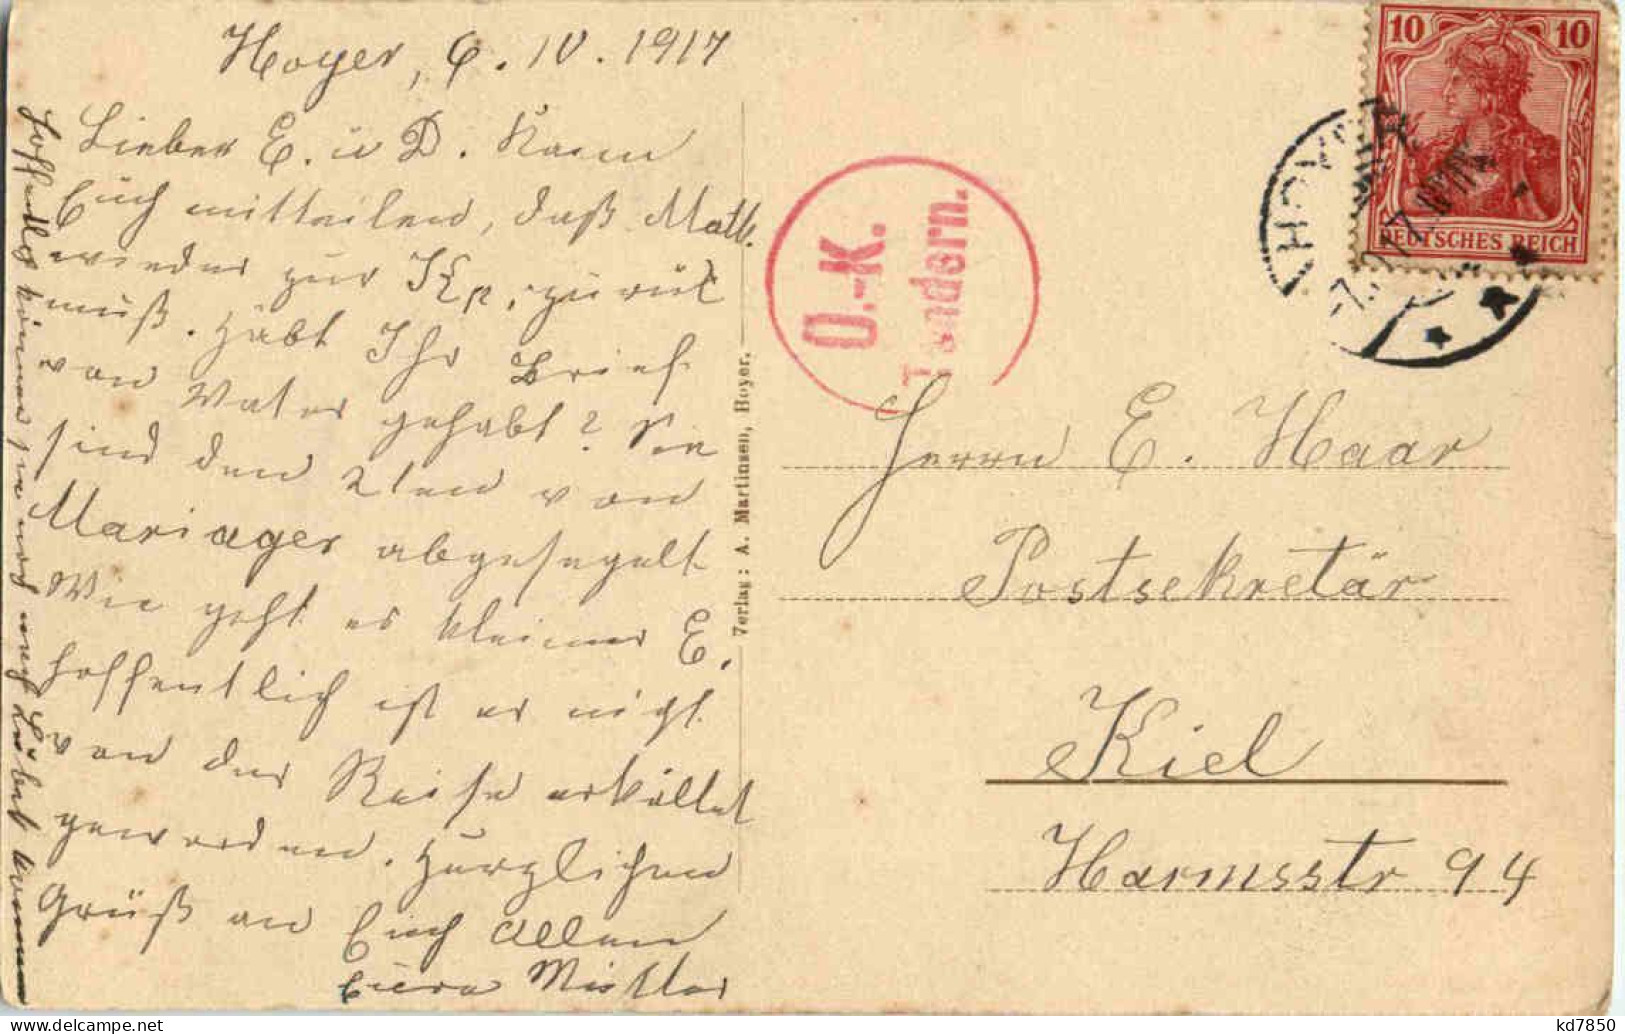 Hoyer, 6. IV. 1917
Lieber E. u D. Kann
Euch mitteilen, daß Math.
wieder zur Kp. zurück
muß. Habt Ihr Brief
von Vater gehabt? Sie
sind den 2ten von
Mariager abgesegelt
Wie geht es kleiner E.
hoffentlich ist er nicht
von der Reise erkältet
geworden. Herzlichen
Gruß an Euch allen
Eure Mutter
Hoffentlich können sie noch nach Lübek kommen
Verlag: A. Martinsen, Hoyer.
O.-K.
Tondern.
HOYER
10 10
DEUTSCHES REICH
Herrn E. Haar
Postsekretär
Kiel
Harmsstr 94
kd7850